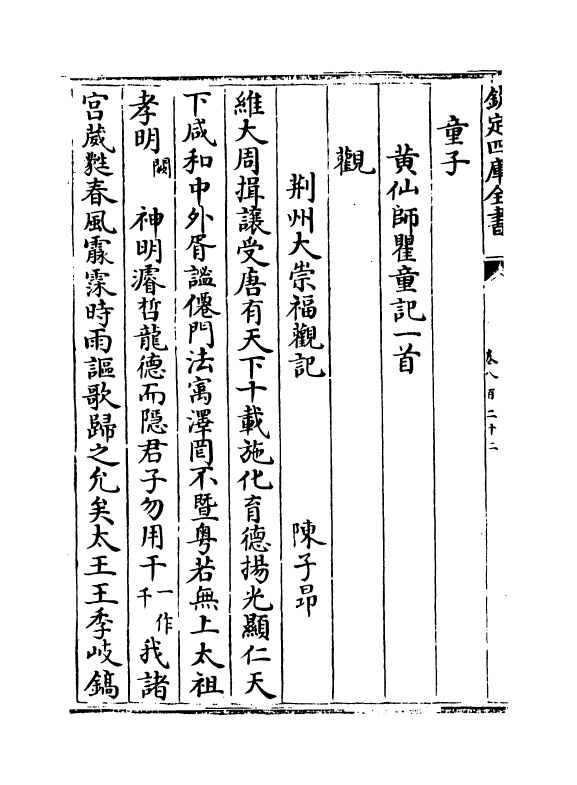 欽定四庫全書
卷八百二十二
童子
黄仙師瞿童記一首
觀
荆州大崇福觀記 陳子昂
維大周揖讓受唐有天下十載施化育德揚光顯仁天
下咸和中外胥謐僊門法寓澤罔不暨粤若無上太祖
孝明闕神明濬哲龍德而隠君子勿用干一作千我諸
宫葳蕤春風霢霂時雨謳歌歸之允矣太王王季岐鎬